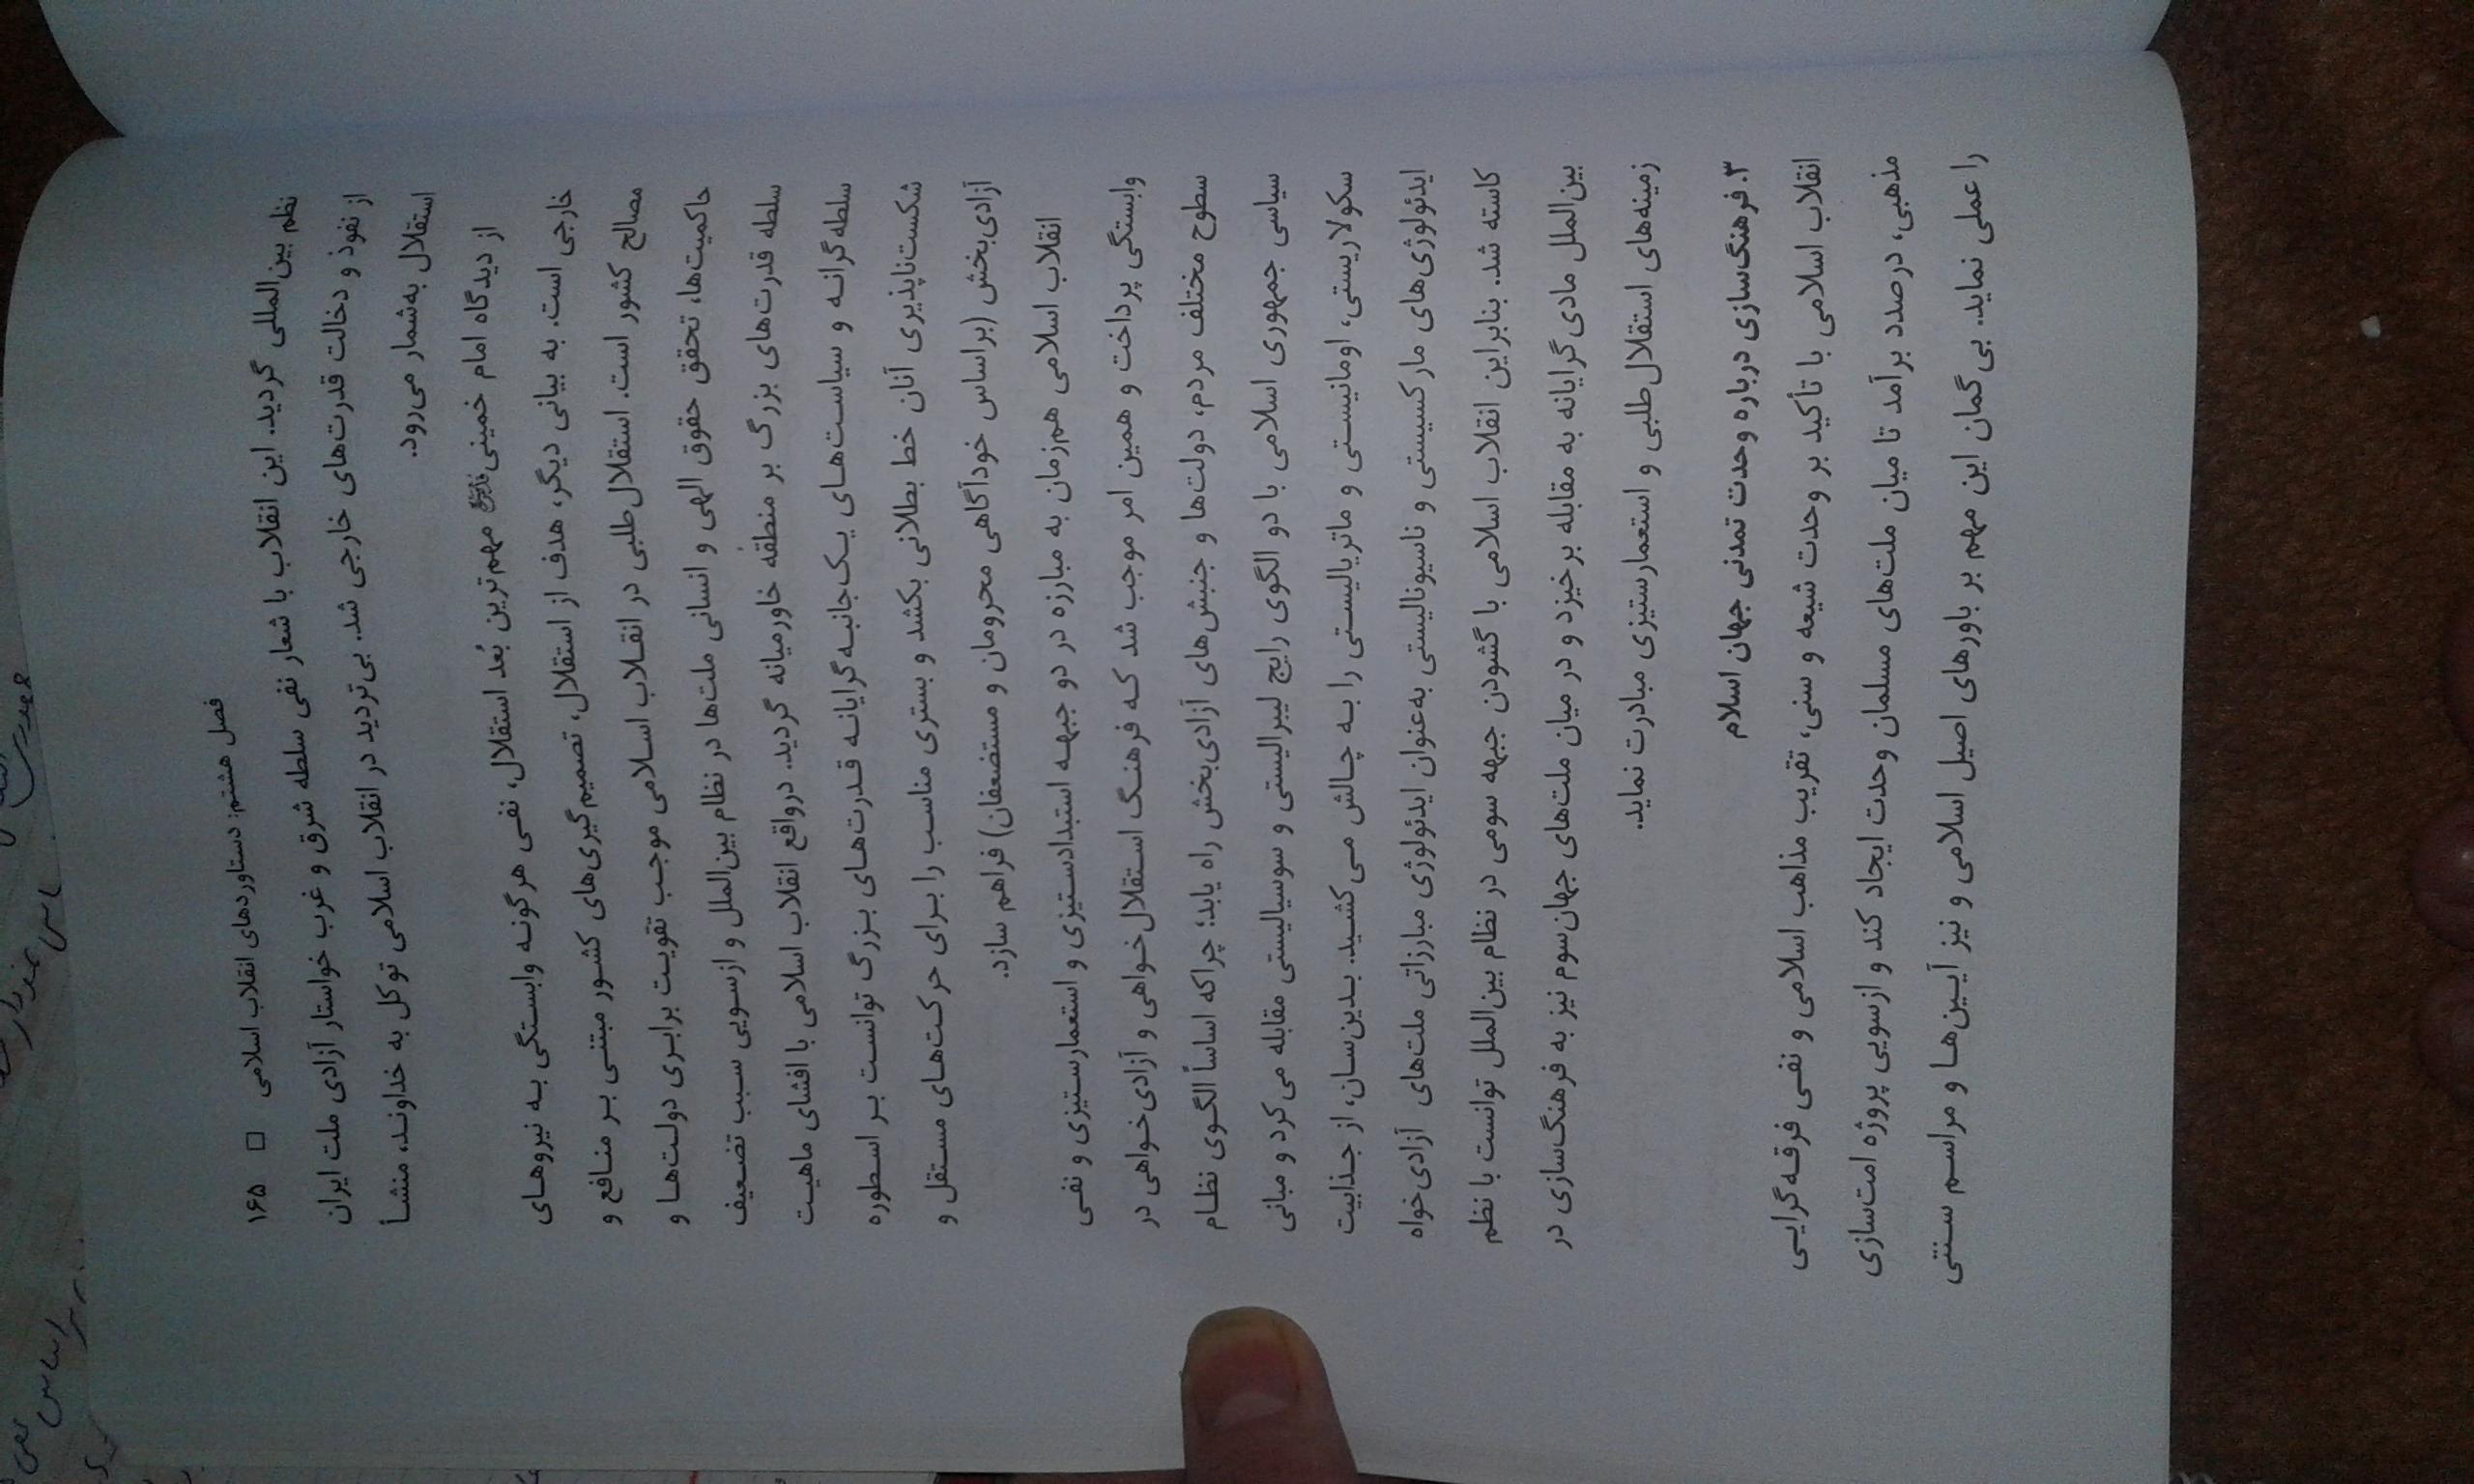 فصل هشتم: دستاوردهای انقلاب اسلامی □ ۱۶۵
نظم بین‌المللی گردید. این انقلاب با شعار نفی سلطه شرق و غرب خواستار آزادی ملت ایران
از نفوذ و دخالت قدرت‌های خارجی شد. بی‌تردید در انقلاب اسلامی توکل به خداوند، منشأ
استقلال به‌شمار می‌رود.
از دیدگاه امام خمینی مهم‌ترین بُعد استقلال، نفی هرگونه وابستگی به نیروهای
خارجی است. به بیانی دیگر، هدف از استقلال، تصمیم‌گیری‌های کشور مبتنی بر منافع و
مصالح کشور است. استقلال‌طلبی در انقلاب اسلامی موجب تقویت برابری دولت‌ها و
حاکمیت‌ها، تحقق حقوق الهی و انسانی ملت‌ها در نظام بین‌الملل و ازسویی سبب تضعیف
سلطه قدرت‌های بزرگ بر منطقه خاورمیانه گردید. درواقع انقلاب اسلامی با افشای ماهیت
سلطه‌گرانه و سیاست‌های یک‌جانبه‌گرایانه قدرت‌های بزرگ توانست بر اسطوره
شکست‌ناپذیری آنان خط بطلانی بکشد و بستری مناسب را برای حرکت‌های مستقل و
آزادی‌بخش (براساس خودآگاهی محرومان و مستضعفان) فراهم سازد.
انقلاب اسلامی هم‌زمان به مبارزه در دو جبهه استبدادستیزی و استعمارستیزی و نفی
وابستگی پرداخت و همین امر موجب شد که فرهنگ استقلال‌خواهی و آزادی‌خواهی در
سطوح مختلف مردم، دولت‌ها و جنبش‌های آزادی‌بخش راه یابد؛ چراکه اساساً الگوی نظام
سیاسی جمهوری اسلامی با دو الگوی رایج لیبرالیستی و سوسیالیستی مقابله می‌کرد و مبانی
سکولاریستی، اومانیستی و ماتریالیستی را به چالش می‌کشید. بدین‌سان، از جذابیت
ایدئولوژی‌های مارکسیستی و ناسیونالیستی به‌عنوان ایدئولوژی مبارزاتی ملت‌های آزادی‌خواه
کاسته شد. بنابراین انقلاب اسلامی با گشودن جبهه سومی در نظام بین‌الملل توانست با نظم
بین‌الملل مادی‌گرایانه به مقابله برخیزد و در میان ملت‌های جهان‌سوم نیز به فرهنگ‌سازی در
زمینه‌های استقلال‌طلبی و استعمارستیزی مبادرت نماید.
۳. فرهنگ‌سازی درباره وحدت تمدنی جهان اسلام
انقلاب اسلامی با تأکید بر وحدت شیعه و سنی، تقریب مذاهب اسلامی و نفی فرقه‌گرایی
مذهبی، درصدد برآمد تا میان ملت‌های مسلمان وحدت ایجاد کند و ازسویی پروژه امت‌سازی
را عملی نماید. بی‌گمان این مهم بر باورهای اصیل اسلامی و نیز آیین‌ها و مراسم سنتی
براساس